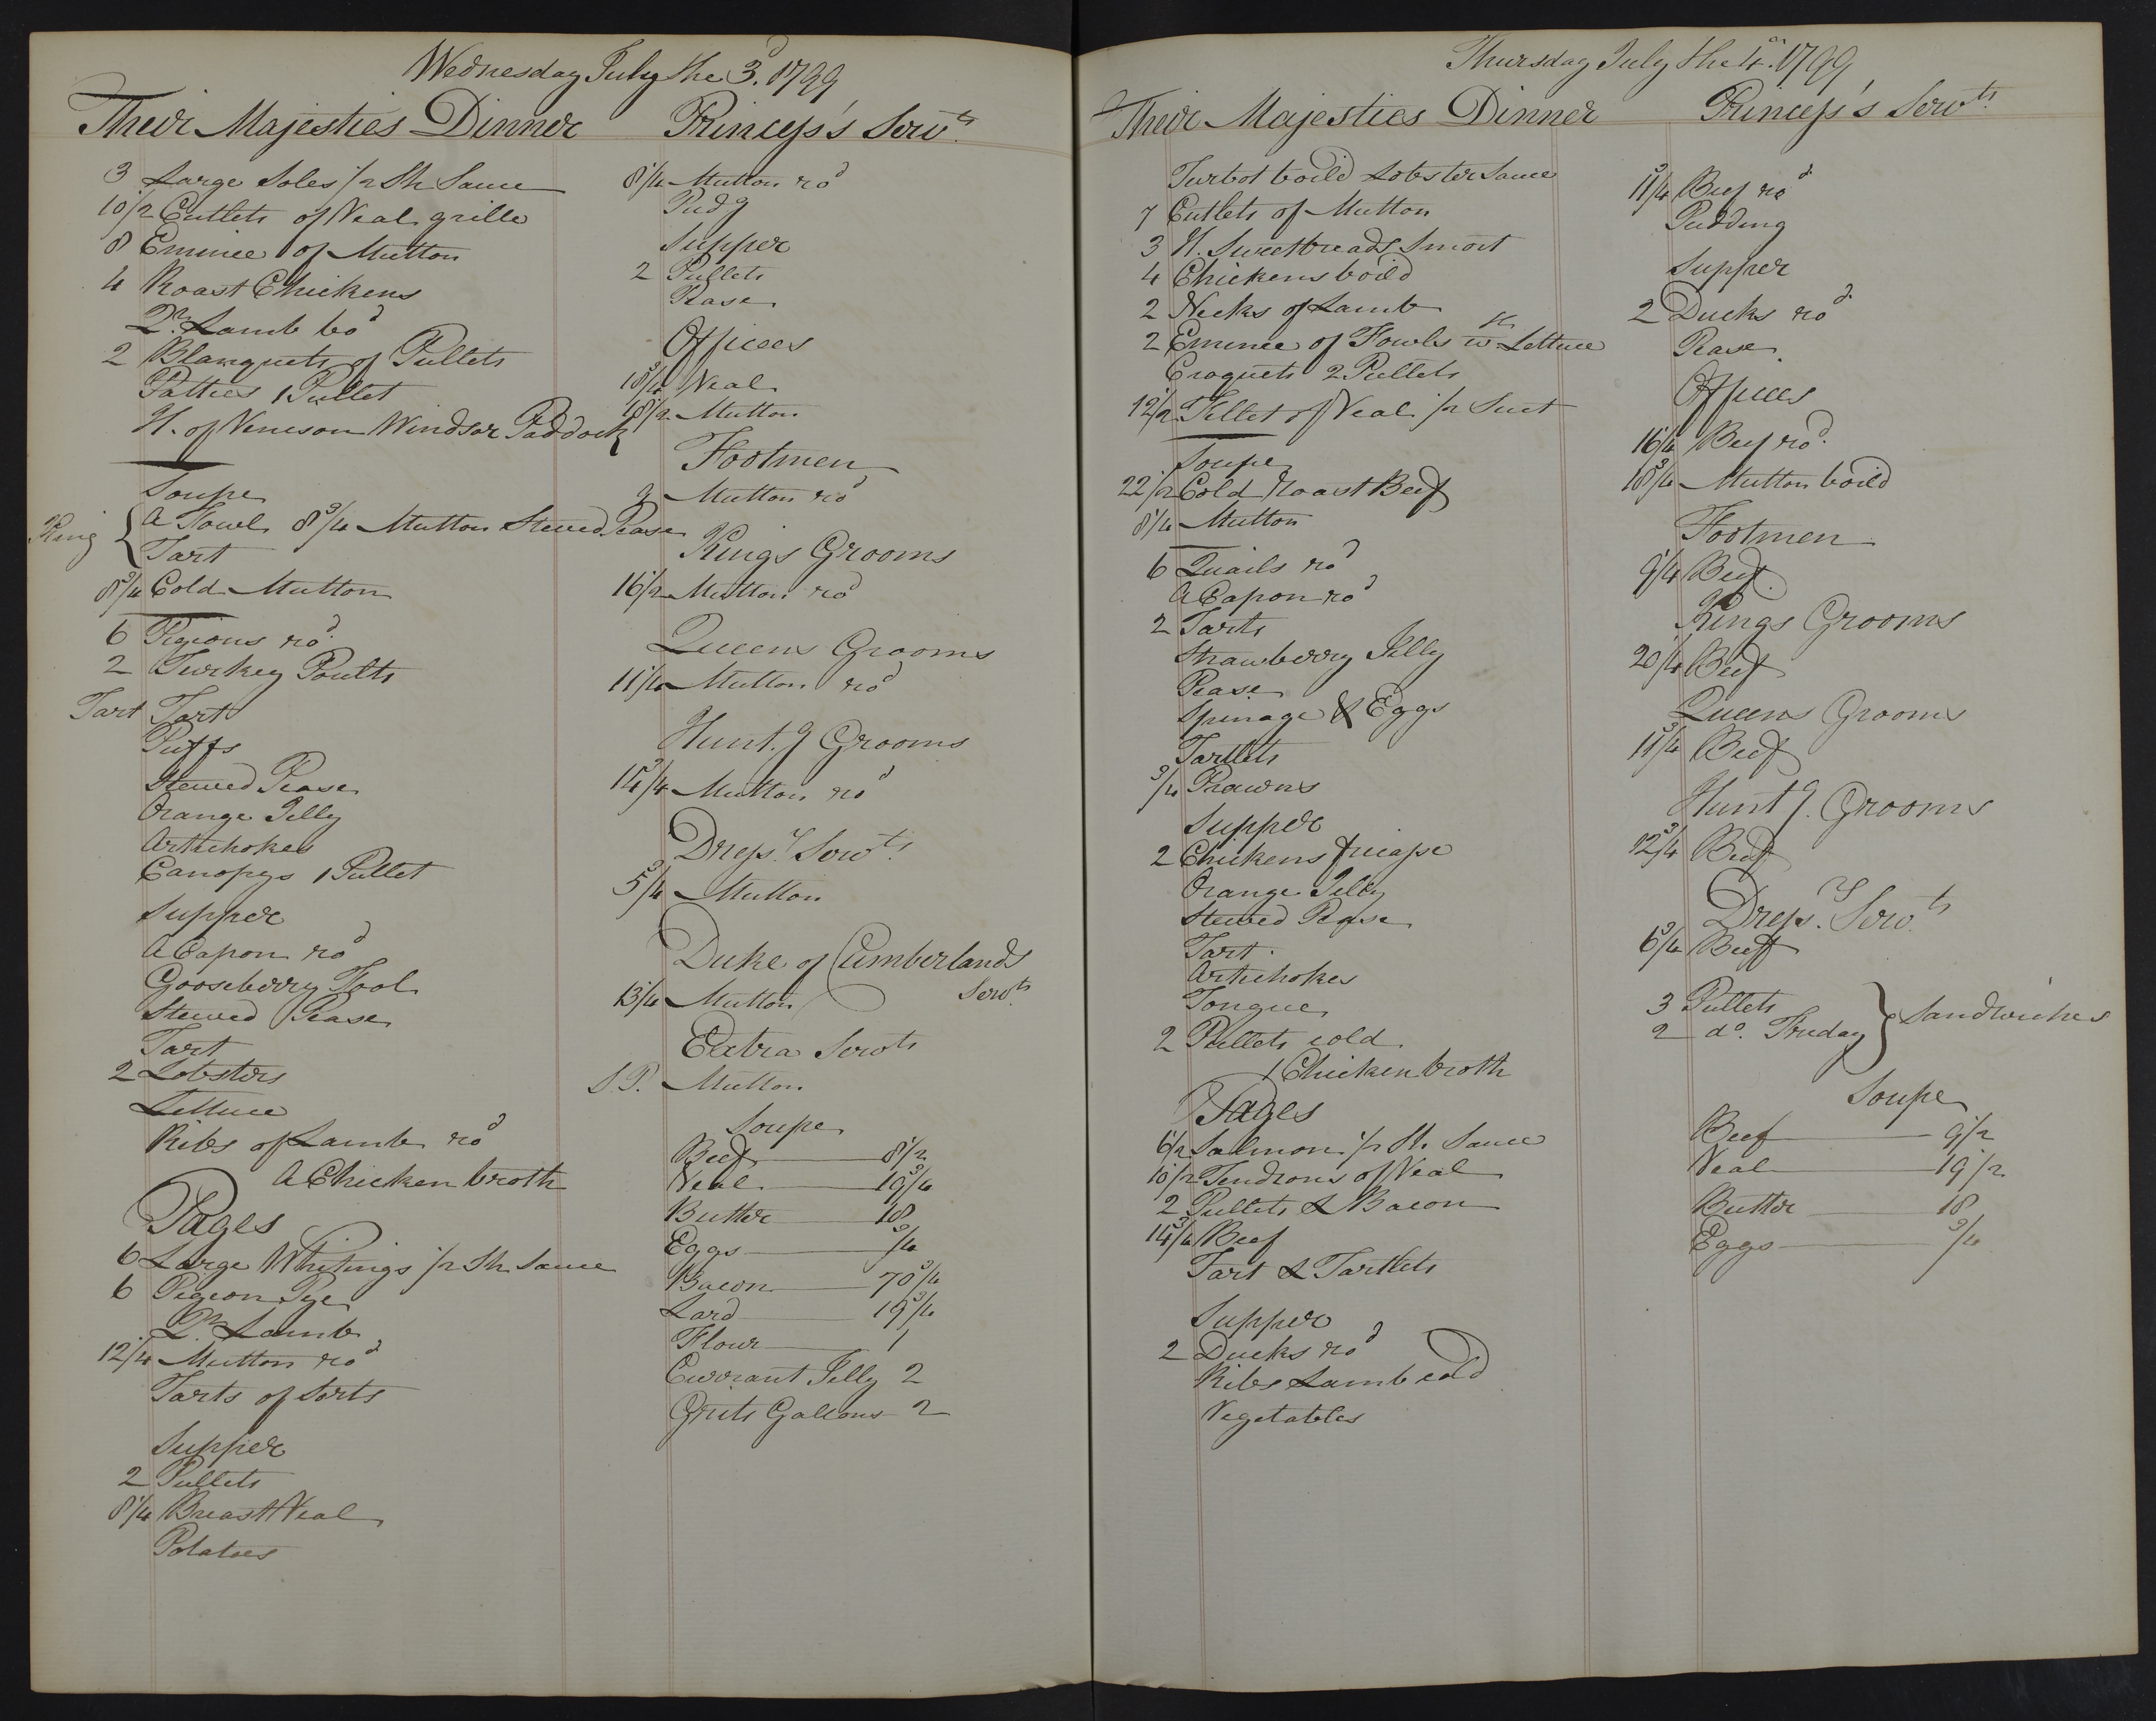 Wednesday July the 3d. 1799
Their Majesties Dinner
3 Large Soles 1/2 Sh Sauce
10 1/2 Cutlets of Veal grille
8 Emince of Mutton
4 Roast Chickens
Qr. Lamb bod
2 Blanquets of Pullets
Patties 1 Pullet
H. of Venison Windsor Paddock
Soupe
King { A Fowl 8 3/4 Mutton Stewed Pease
Tart
8 3/4 Cold Mutton
6 Pigions rod.
2 Turkey Poults
Tart Tart
Puffs
Stewed Pease
Orange Jelly
Artichokes
Canopys 1 Pullet
Supper
A Capon rod
Gooseberry Fool
Stewed Pease
Tart
2 Lobsters
Lettuce
Ribs of Lamb rod
A Chicken broth
Pages
6 Large Whitings 1/2 Sh Sauce
6 Pigeon Pye
Qr. Lamb
12 1/4 Mutton rod
Tarts of Sorts
Supper
2 Pullets
8 1/4 Breast Veal
Potatoes
Princess's Servts.
8 1/4 Mutton rod
Pudg
Supper
2 Pullets
Pease
Offices
18 3/4 Veal
18 1/2 Mutton
Footmen
9 Mutton rod
Kings Grooms
16 1/2 Mutton rod
Queens Grooms
11 1/4 Mutton rod
Hunt.g Grooms
14 3/4 Mutton rod
Dress.rs Servts.
5 3/4 Mutton
Duke of Cumberlands
Servts.
13 1/4 Mutton
Extra Servts
S.P. Mutton
Soupe
Beef 8 1/2
Veal 19 3/4
Butter 18
Eggs 3/4
Bacon 70 3/4
Lard 19 3/4
Flour 1
Currant Jelly 2
Grits Gallons 2
Thursday July the 4th. 1799
Their Majesties Dinner
Turbot boild Lobster Sauce
7 Cutlets of Mutton
3 H. Sweetbreads Smort
4 Chickens boild
2 Necks of Lamb
2 Emince of Fowls wth Lettuce
Croquets 2 Pullets
12 1/2 Fillet of Veal 1/2 Suet
Soupe
22 1/2 Cold Roast Beef
8 1/4 Mutton
6 Quails rod
A Capon rod
2 Tarts
Strawberry Jelly
Pease
Spinage & Eggs
Tartlets
3/4 Prawns
Supper
2 Chickens fricasse
Orange Jelly
Stewed Pease
Tart.
Artichokes
Tongue
2 Pullets cold
1 Chicken broth
Pages
6 1/2 Salmon 1/2 Sh. Sauce
10 1/2 Tendrons of Veal
2 Pullets & Bacon
14 3/4 Beef
Tart & Tartlets
Supper
2 Ducks rod
Ribs Lamb cold
Vegetables
Princess's Servts.
11 3/4 Beef rod
Pudding
Supper
2 Ducks rod
Pease
Offices
16 1/4 Beef rod.
18 3/4 Mutton boild
Footmen
9 1/4 Beef
Kings Grooms
20 1/4 Beef
Queens Grooms
11 3/4 Beef
Hunt.g. Grooms
12 3/4 Beef
Dress.rs Servts
6 3/4 Beef
3 Pullets
2 do. Friday } Sandwiches
Soupe
Beef 9 1/2
Veal 19 1/2
Butter 18
Eggs 3/4